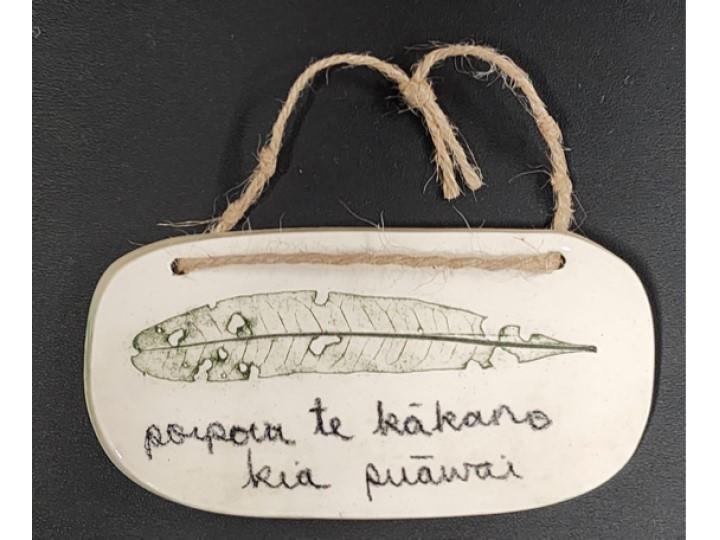 poipoia te kākano
kia puāwai